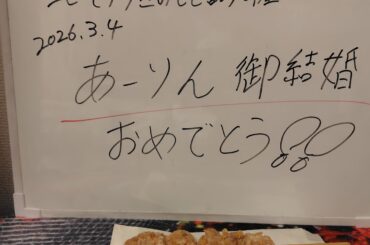 2026.3.4
あーりん 御結婚
おめでとう!!